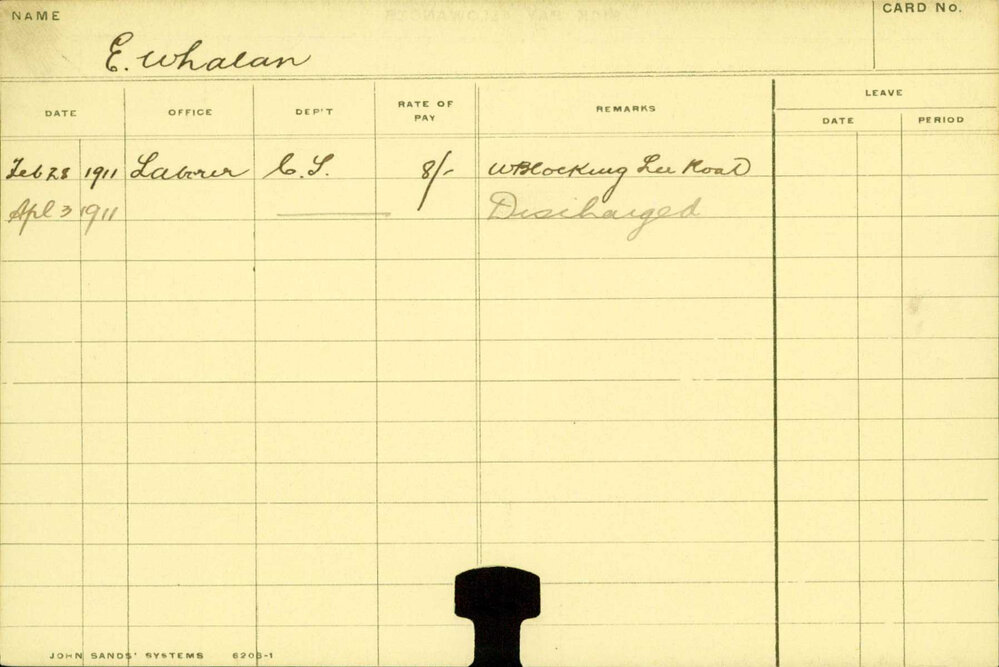 NAME
CARD No.
E. Whalan
DATE OFFICE DEP'T RATE OF PAY REMARKS LEAVE
DATE PERIOD
Feb 28 1911 Laborer C.S. 8/- WBlocking Lee Road
Apl 3 1911 Discharged
JOHN SANDS' SYSTEMS 6206-1